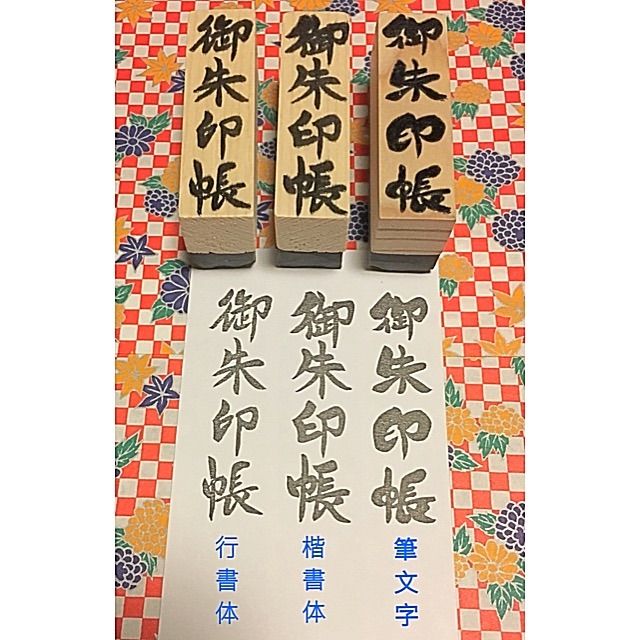 御朱印帳
御朱印帳
御朱印帳
御朱印帳
御朱印帳
御朱印帳
行書体
楷書体
筆文字